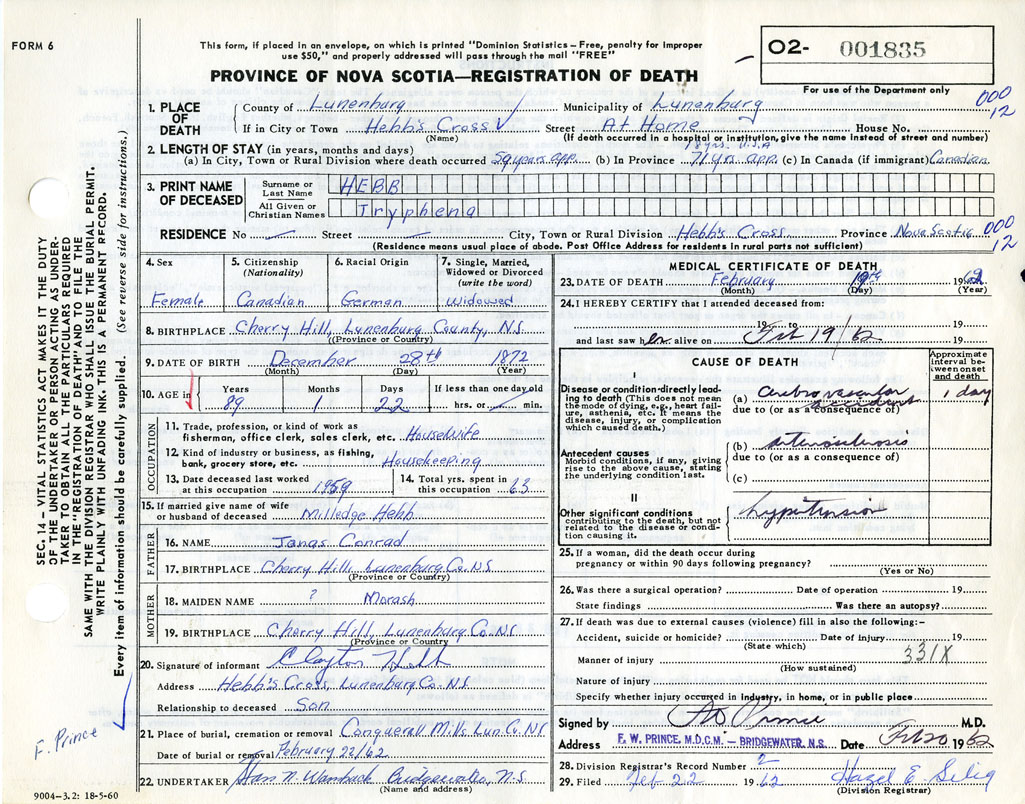 FORM 6
This form, if placed in an envelope, on which is printed "Dominion Statistics – Free, penalty for improper
use $50," and properly addressed will pass through the mail "FREE"
O2- 001835
For use of the Department only
PROVINCE OF NOVA SCOTIA—REGISTRATION OF DEATH
000
12
1. PLACE OF DEATH
County of Lunenburg Municipality of Lunenburg
If in City or Town Hebb's Cross Street At Home House No.
(Name) (If death occurred in a hospital or institution, give the name instead of street and number)
2. LENGTH OF STAY (in years, months and days) 18 yrs. U.S.A
(a) In City, Town or Rural Division where death occurred 59 years app. (b) In Province 71 yrs app. (c) In Canada (if immigrant) Canadian
3. PRINT NAME OF DECEASED
Surname or Last Name HEBB
All Given or Christian Names Tryphena
RESIDENCE No Street City, Town or Rural Division Hebb's Cross Province Nova Scotia 000
12
(Residence means usual place of abode. Post Office Address for residents in rural parts not sufficient)
4. Sex Female
5. Citizenship (Nationality) Canadian
6. Racial Origin German
7. Single, Married, Widowed or Divorced (write the word) Widowed
8. BIRTHPLACE Cherry Hill, Lunenburg County, N.S.
(Province or Country)
9. DATE OF BIRTH December 28th 1872
(Month) (Day) (Year)
10. AGE in Years 89 Months 1 Days 22 If less than one day old hrs. or min.
OCCUPATION
11. Trade, profession, or kind of work as
fisherman, office clerk, sales clerk, etc. Housewife
12. Kind of industry or business, as fishing,
bank, grocery store, etc. Housekeeping
13. Date deceased last worked
at this occupation 1959
14. Total yrs. spent in
this occupation 63
15. If married give name of wife
or husband of deceased Milledge Hebb
FATHER
16. NAME Jonas Conrad
17. BIRTHPLACE Cherry Hill, Lunenburg Co. N.S
(Province or Country)
MOTHER
18. MAIDEN NAME ? Morash
19. BIRTHPLACE Cherry Hill, Lunenburg Co. NS
(Province or Country)
20. Signature of informant Clayton Hebb
Address Hebb's Cross, Lunenburg Co. NS
Relationship to deceased Son
21. Place of burial, cremation or removal Conquerall M. Lun. Co. NS
Date of burial or removal February 22/62
22. UNDERTAKER N. Bridgewater, N.S
(Name and address)
MEDICAL CERTIFICATE OF DEATH
23. DATE OF DEATH February 19th 1962
(Month) (Day) (Year)
24. I HEREBY CERTIFY that I attended deceased from:
19 to 19
and last saw her alive on Feb 19/62 19
CAUSE OF DEATH
Approximate interval between onset and death
I
Disease or condition directly leading to death (This does not mean the mode of dying, e.g., heart failure, asthenia, etc. It means the disease, injury, or complication which caused death.)
(a) Cerebro vascular accident 1 day
due to (or as a consequence of)
Antecedent causes
Morbid conditions, if any, giving rise to the above cause, stating the underlying condition last.
(b) arteriosclerosis
due to (or as a consequence of)
(c)
II
Other significant conditions
contributing to the death, but not related to the disease or condition causing it.
hypertension
25. If a woman, did the death occur during
pregnancy or within 90 days following pregnancy?
(Yes or No)
26. Was there a surgical operation? Date of operation 19
State findings Was there an autopsy?
27. If death was due to external causes (violence) fill in also the following:-
Accident, suicide or homicide? Date of injury 19
(State which)
Manner of injury 331X
(How sustained)
Nature of injury
Specify whether injury occurred in industry, in home, or in public place
Signed by F W Prince M.D.
Address F. W. PRINCE, M.D.C.M. – BRIDGEWATER, N.S. Date Feb 20 1962
28. Division Registrar's Record Number 2
29. Filed Feb 22 1962 Hazel E. Selig
(Division Registrar)
SEC. 14 – VITAL STATISTICS ACT MAKES IT THE DUTY
OF THE UNDERTAKER OR PERSON ACTING AS UNDER-
TAKER TO OBTAIN ALL THE PARTICULARS REQUIRED
IN THE "REGISTRATION OF DEATH" AND TO FILE THE
SAME WITH THE DIVISION REGISTRAR WHO SHALL ISSUE THE BURIAL PERMIT.
WRITE PLAINLY WITH UNFADING INK. THIS IS A PERMANENT RECORD.
Every item of information should be carefully supplied. (See reverse side for instructions.)
F. Prince
9004–3.2: 18-5-60